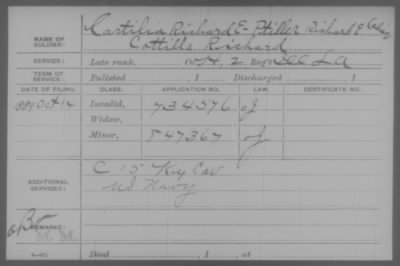 Cartilia Richard E
Richard E
NAME OF SOLDIER: Cottilla Richard
SERVICE: Late rank, Co. H, 2 Reg't
TERM OF SERVICE: Enlisted , 1 Discharged , 1
DATE OF FILING. CLASS. APPLICATION NO. LAW. CERTIFICATE NO.
Oct 14 Invalid, 734576
Widow,
Minor, 547367
ADDITIONAL SERVICES: C 15 Ky Cav
US Navy
REMARKS:
Died , 1 , at